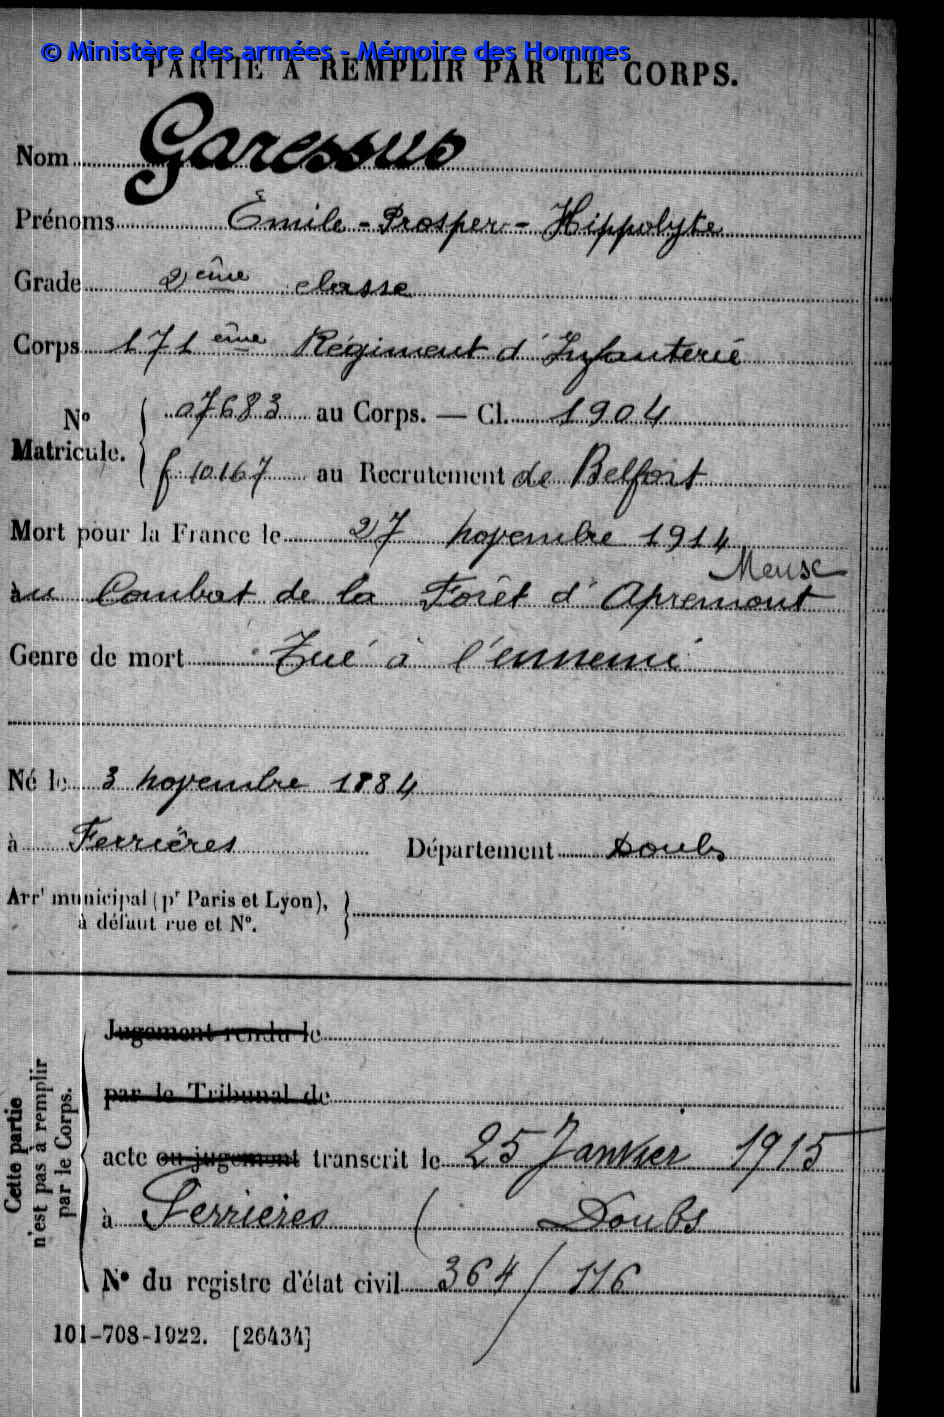 © Ministère des armées - Mémoire des Hommes
PARTIE À REMPLIR PAR LE CORPS.
Nom Garessus
Prénoms Emile - Prosper - Hippolyte
Grade 2ème classe
Corps 171ème Régiment d'Infanterie
Nº Matricule. { 07683 au Corps. — Cl. 1904
f 10167 au Recrutement de Belfort
Mort pour la France le 27 novembre 1914
Meuse
au Combat de la Forêt d'Apremont
Genre de mort Tué à l'ennemi
Né le 3 novembre 1884
à Ferrières Département Doubs
Arrt municipal (pr Paris et Lyon),
à défaut rue et Nº.
Cette partie
n'est pas à remplir
par le Corps.
Jugement rendu le
par le Tribunal de
acte ou jugement transcrit le 25 Janvier 1915
à Ferrieres ( Doubs
Nº du registre d'état civil 364/116
101-708-1922. [26434]